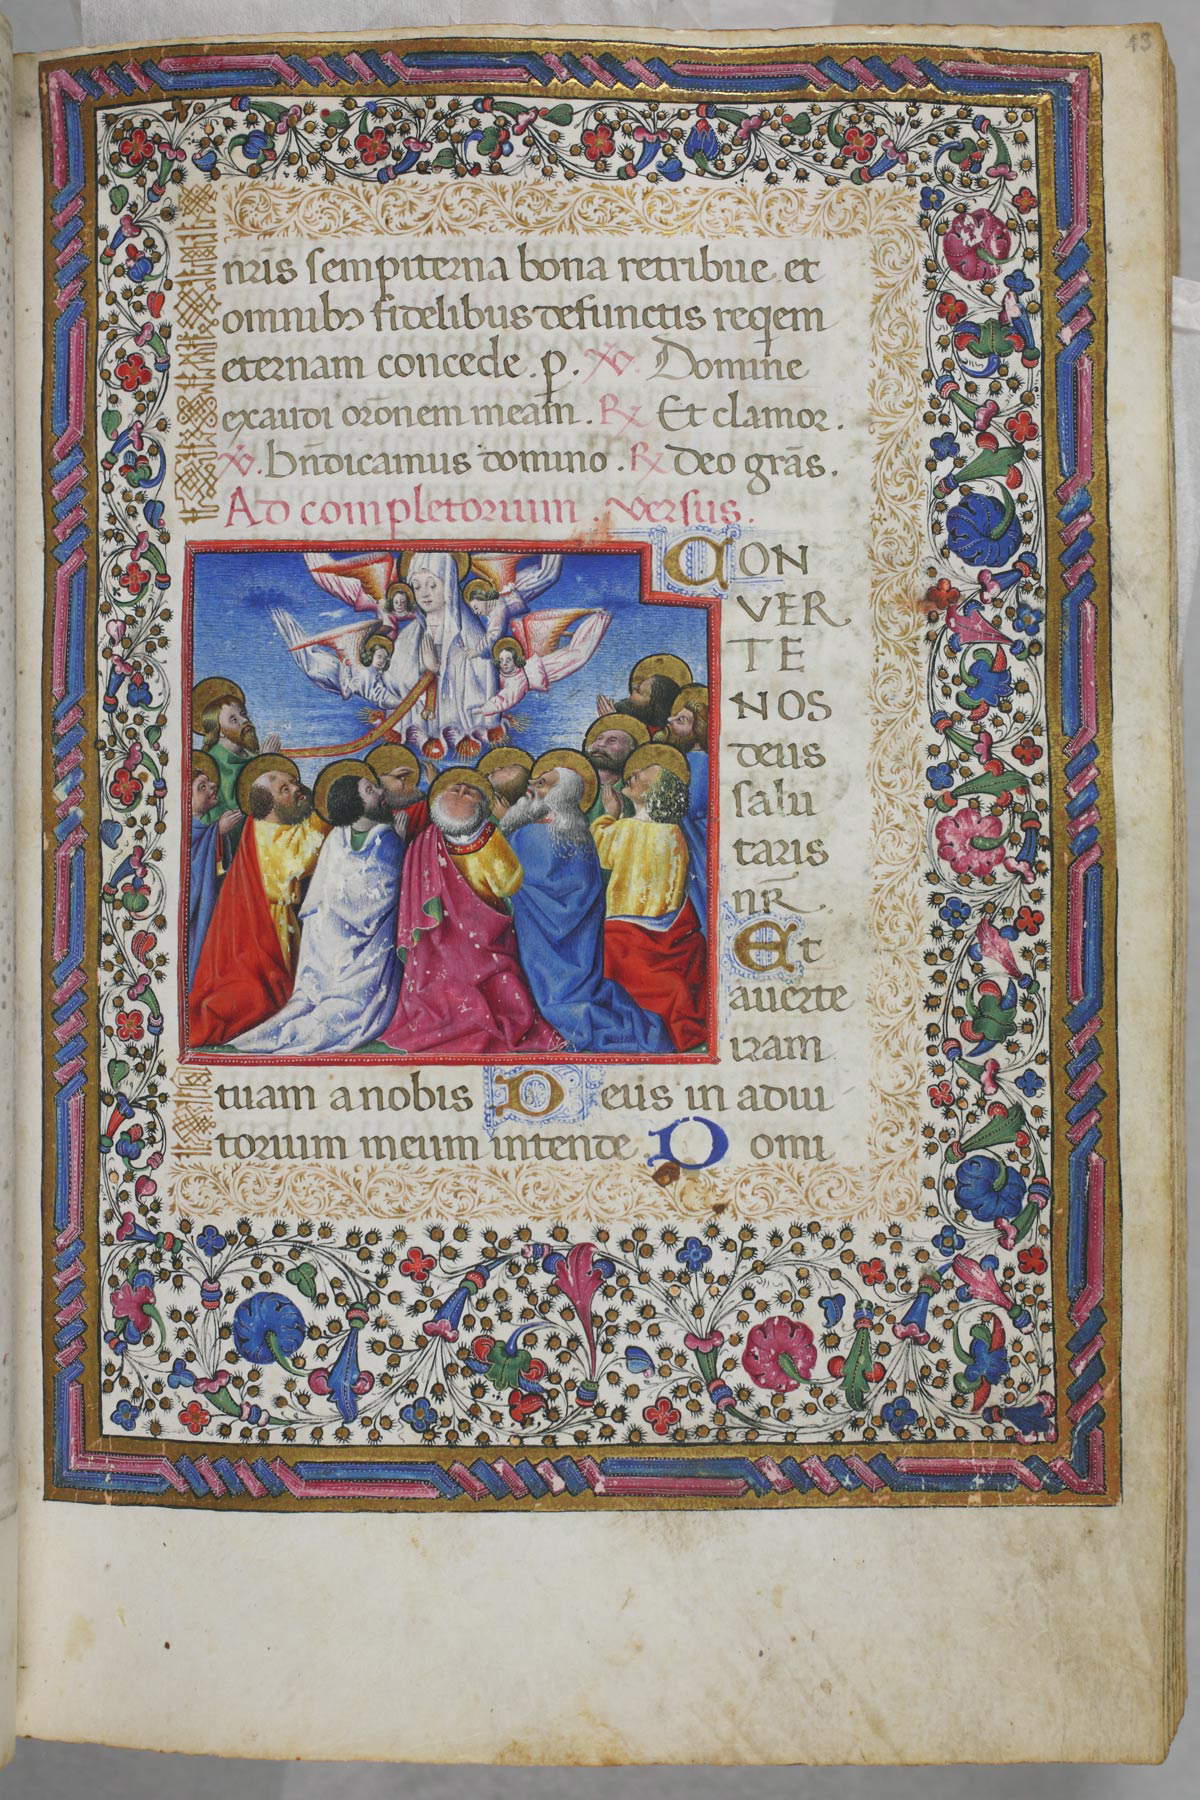 13
nr̄is sempiterna bona retribue et
omnibꝰ fidelibus defunctis reqȩm
eternam concede . p . ℣. Domine
exaudi orōnem meam . ℟ Et clamor .
℣. bn̄dicamus domino . ℟ deo grās .
Ad completorium . versus .
CON
VER
TE
NOS
deus
salu
taris
nr̄ .
Et
averte
iram
tuam a nobis Deus in adiu
torium meum intende Domi